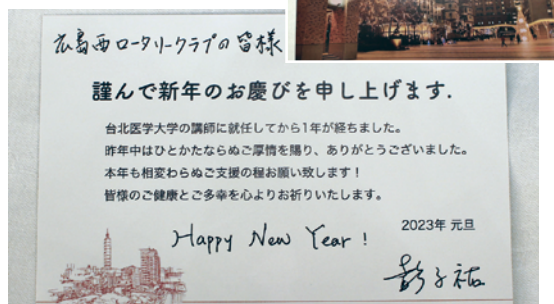 広島西ロータリークラブの皆様
謹んで新年のお慶びを申し上げます.
台北医学大学の講師に就任してから1年が経ちました。
昨年中はひとかたならぬご厚情を賜り、ありがとうございました。
本年も相変わらぬご支援の程お願い致します！
皆様のご健康とご多幸を心よりお祈りいたします。
2023年 元旦
Happy New Year !
彭子祐